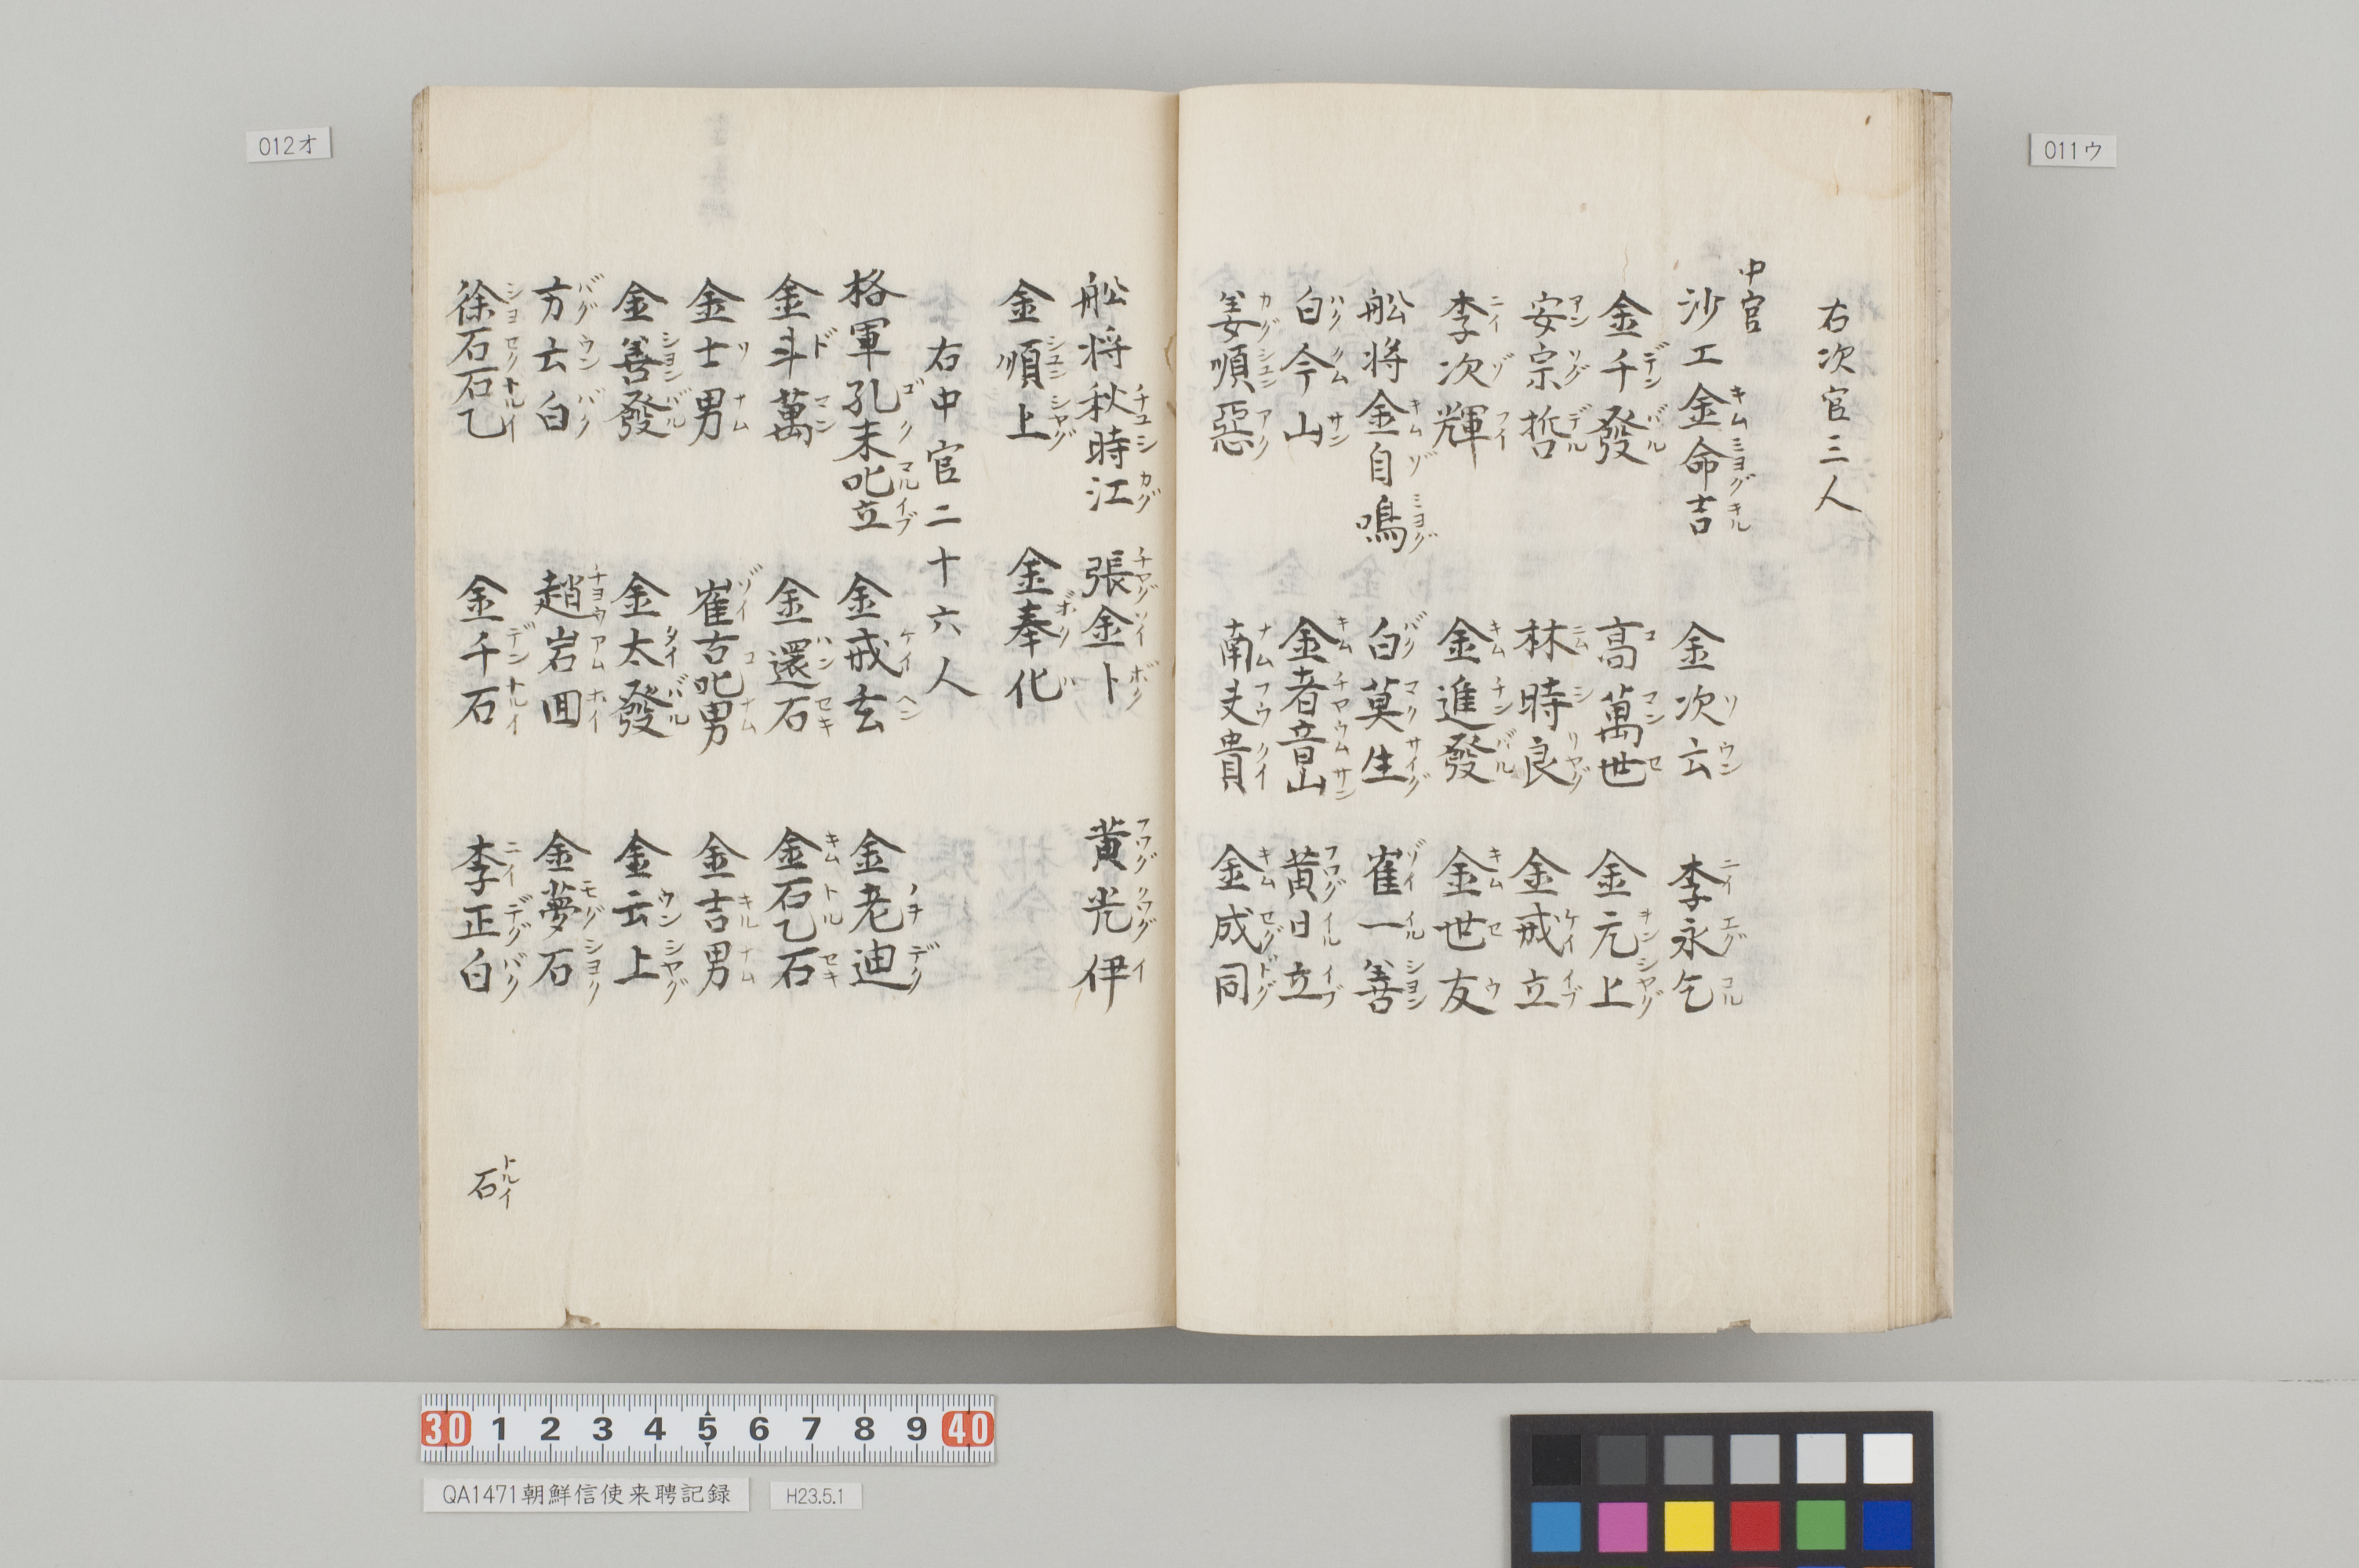 右次官三人
中官
沙工金命吉 金次云 李永乞
金千發 高萬世 金元上
安宗哲 林時良 金戒立
李次輝 金進發 金世友
舩将金自鳴 白莫生 崔一善
白今山 金者音山 黄日立
姜順惡 南夫貴 金成同
舩将秋時江 張金卜 黄光伊
金順上 金奉化
右中官二十六人
格軍孔末叱立 金戒玄 金老迪
金斗萬 金還石 金石乙石
金士男 崔古叱男 金吉男
金善發 金太發 金云上
方云白 趙岩回 金夢石
徐石石乙 金千石 李正白
石
012オ
011ウ
30 1 2 3 4 5 6 7 8 9 40
QA1471朝鮮信使来聘記録
H23.5.1